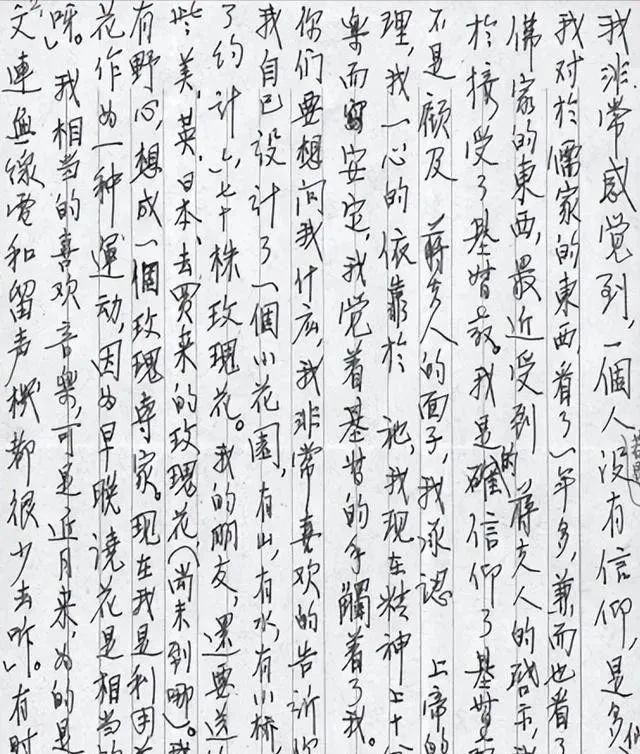 我非常感覚到,一個人没有信仰,是多
我对於儒家的東西,看了一年多,兼而也看了
佛家的東西,最近受到的蔣夫人的啓示,
於接受了基督教。我是確信仰了基督
不是顧及 蔣夫人的面子,我承認 上帝的
理,我一心的依靠於 祂,我现在精神上十
樂而安定,我觉着基督的手觸着了我。
你们要想问我什広,我非常喜欢的告訴你
我自己設计了一個小花園,有山,有水,有小橋,
了约计六、七十株玫瑰花。我的朋友,還要送
些美、英、日本、去買来的玫瑰花(尚未到哪)。
有野心,想成一個玫瑰專家。现在我是利用
花作为一种運动,因为早晚澆花是相当的
呀。我相当的喜欢音樂,可是近月来,为的是
文,連無線電和留声機,都很少去听。有时